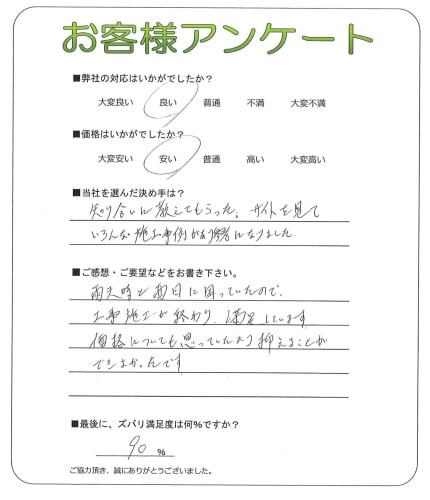 お客様アンケート
■弊社の対応はいかがでしたか？
大変良い 良い 普通 不満 大変不満
■価格はいかがでしたか？
大変安い 安い 普通 高い 大変高い
■当社を選んだ決め手は？
知り合いに教えてもらった。サイトを見て
いろんな施工事例があり参考になりました。
■ご感想・ご要望などをお書き下さい。
雨天時と西日に困っていたので、
工事施工が終わり、満足しています。
価格についても思っていたより抑えることが
でき よかったです
■最後に、ズバリ満足度は何％ですか？
90 ％
ご協力頂き、誠にありがとうございました。